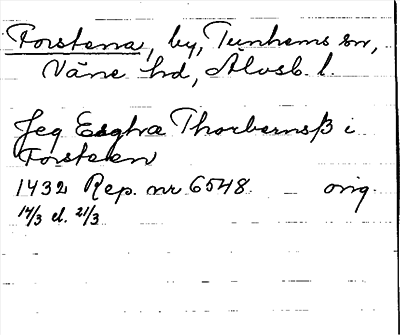 Forstena, by, Tunhems sn,
Väne hd, Älvsb. l.
Jeg Esghe Thorbernsß i
Forsteen
1432 Rep. nr 6548. orig.
14/3 el. 21/3